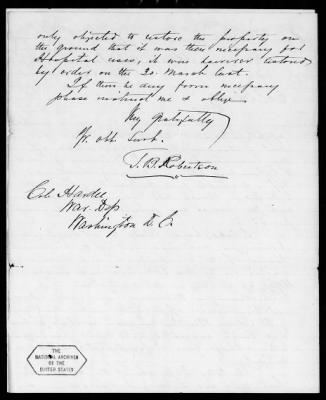 only objected to restore the property on
the ground that it was then necessary for
Hospital uses, it was however restored
by order on the 20. March last.
If there be any form necessary
please instruct me & oblige
Very gratefully
Yr. obt. Servt.
J. B. Robertson
Col. Hardee
War. Dep
Washington D. C.
THE
NATIONAL ARCHIVES
OF THE
UNITED STATES